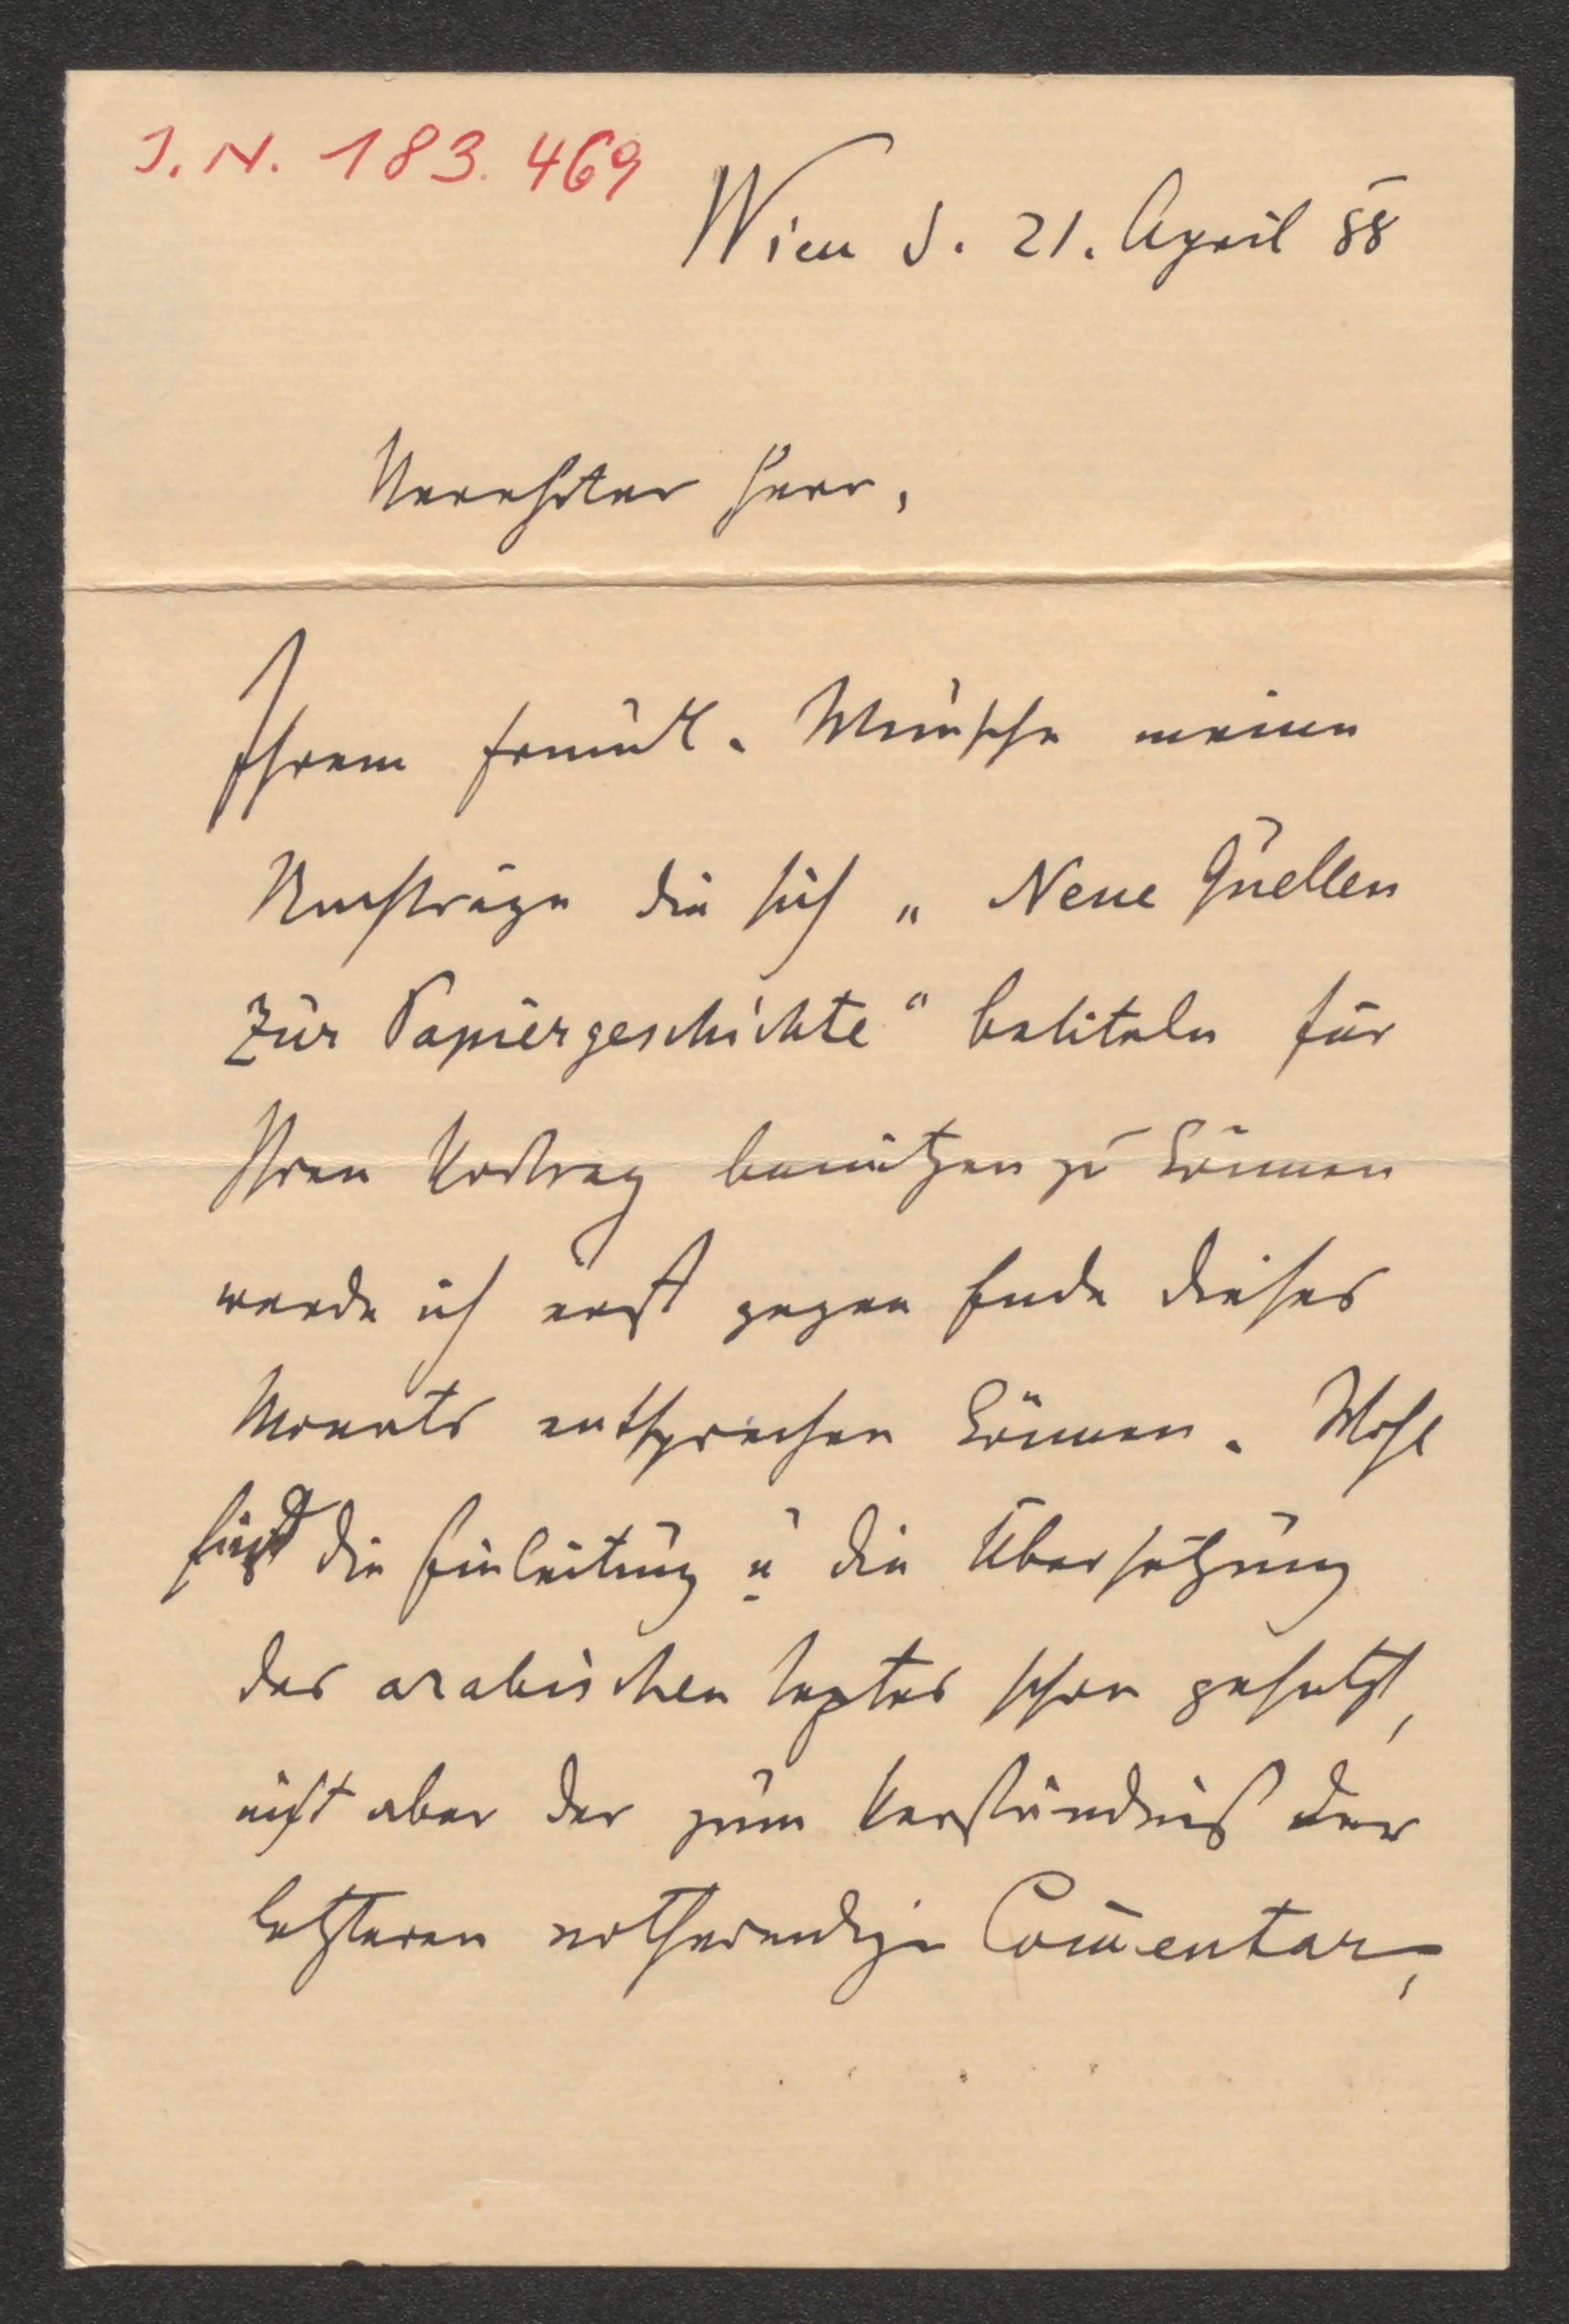 I. N. 183.469
Wien d. 21. April 88
Verehrter Herr,
Ihrem freundl. Wunsche meine
Nachträge die sich „Neue Quellen
zur Papiergeschichte“ betiteln für
Ihren Vortrag benützen zu können
werde ich erst gegen Ende dieses
Monats entsprechen können. Wohl
sind die Einleitung u die Übersetzung
des arabischen Textes schon gesetzt,
nicht aber der zum Verständniß der
letzteren nothwendige Com̄entar,